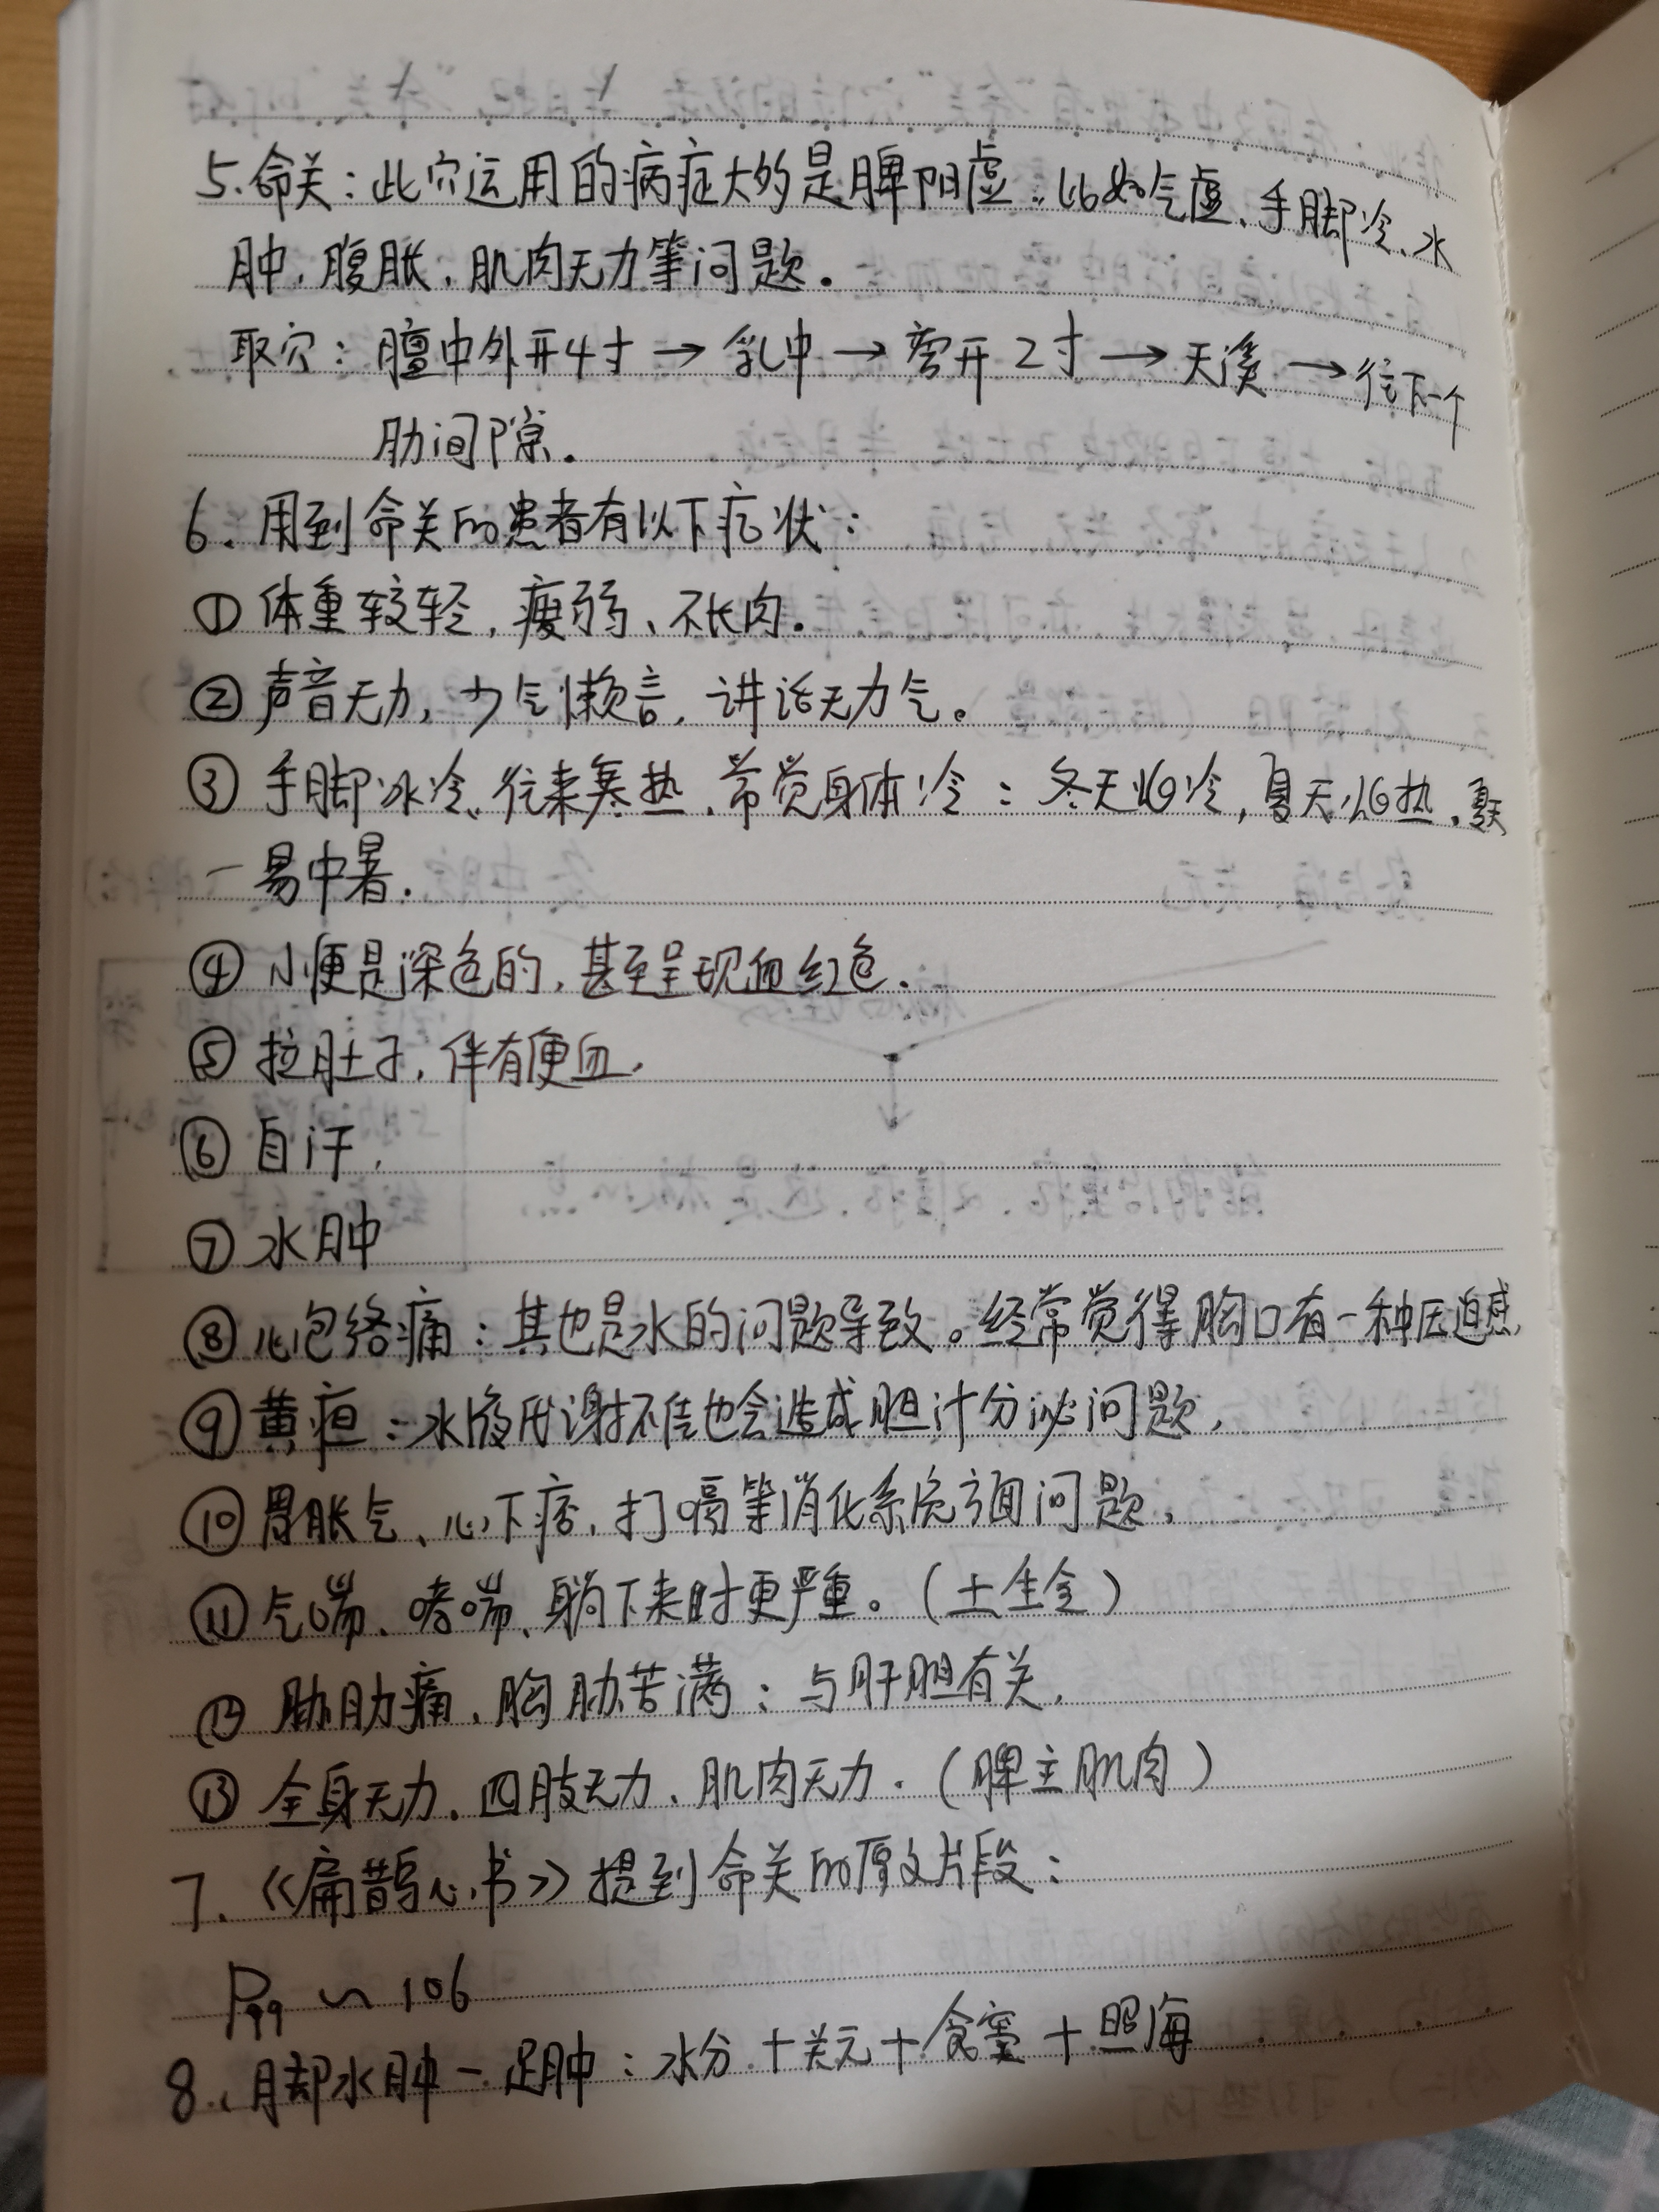 5.命关：此穴运用的病症大的是脾阳虚：比如气虚、手脚冷、水
肿，腹胀，肌肉无力等问题。
取穴：膻中外开4寸→乳中→旁开2寸→天溪→往下一个
肋间隙.
6.用到命关的患者有以下症状：
①体重较轻，瘦弱、不长肉.
②声音无力，少气懒言，讲话无力气。
③手脚冰冷、往来寒热、常觉身体冷：冬天怕冷，夏天怕热，夏天
一易中暑.
④小便是深色的，甚至呈现血红色.
⑤拉肚子，伴有便血.
⑥自汗,
⑦水肿
⑧心包络痛：其也是水的问题导致。经常觉得胸口有一种压迫感,
⑨黄疸：水液代谢不佳也会造成胆汁分泌问题,
⑩胃胀气、心下痞，打嗝等消化系统方面问题,
⑪气喘、哮喘、躺下来时更严重。(土生金)
⑫胁肋痛、胸胁苦满：与肝胆有关,
⑬全身无力、四肢无力、肌肉无力.(脾主肌肉)
7.《扁鹊心书》提到命关的原文片段：
P99~106
8.脚水肿-足肿：水分+关元+食窦+照海